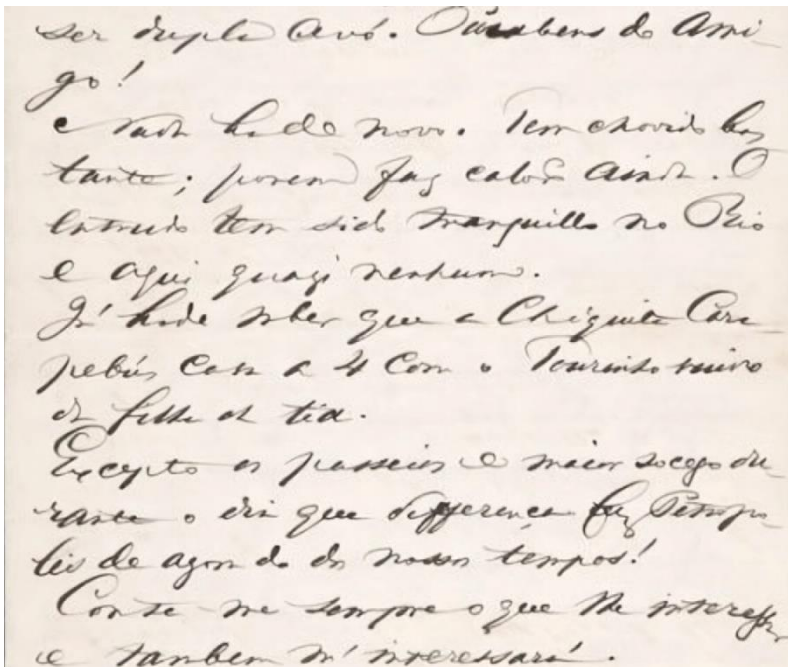 ser dupla Avó. Parabens do Ami-
go!
Nada ha de novo. Tem chovido bas
tante; porem faz calor ainda. O
entrudo tem sido tranquillo no Rio
e aqui quazi nenhum.
Já hade saber que a Chiquita Cara
pebús casa a 4 com o Tourinho viuvo
da filha da tia.
Excepto os passeios e maior socego du-
rante o dia que differença faz Petropo-
lis de agora do dos nossos tempos!
Conte-me sempre o que lhe interessar
e tambem m'interessará.